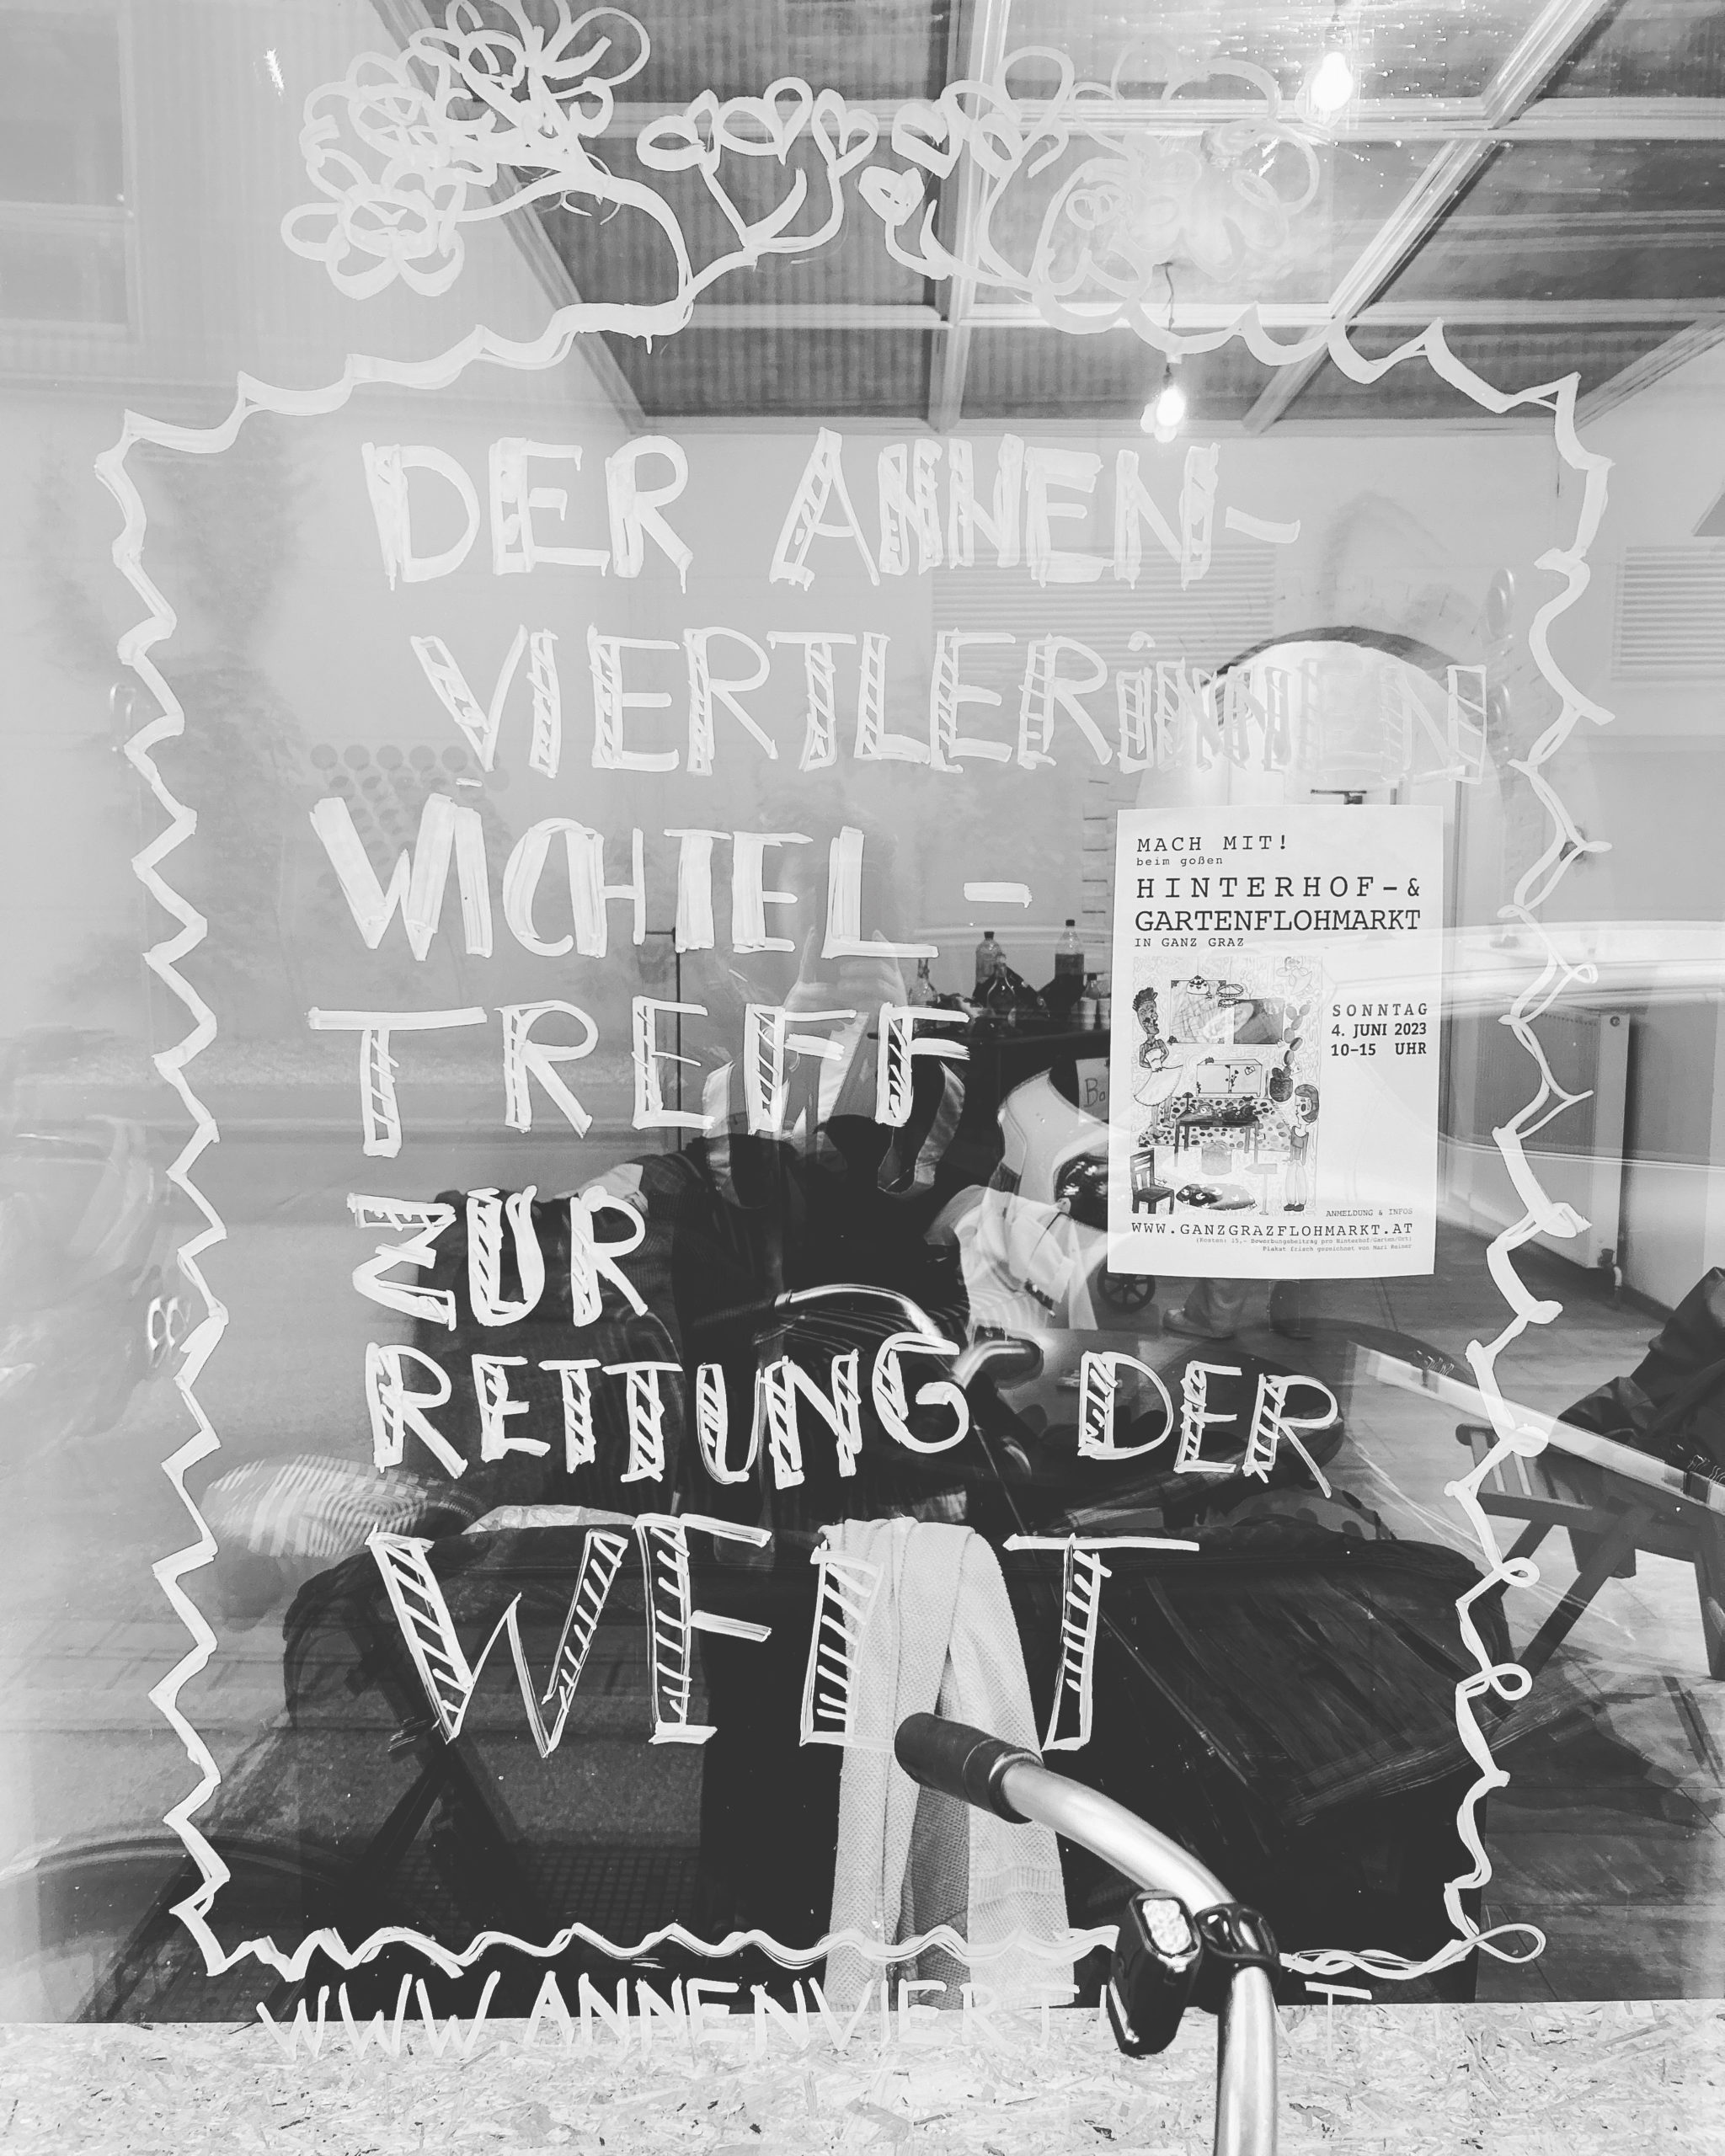 DER ANNEN-
VIERTLERiNNEN
WICHTEL-
TREFF
ZUR
RETTUNG DER
WELT
WWW.ANNENVIERT
MACH MIT!
beim goßen
HINTERHOF-&
GARTENFLOHMARKT
IN GANZ GRAZ
SONNTAG
4. JUNI 2023
10-15 UHR
ANMELDUNG & INFOS
WWW.GANZGRAZFLOHMARKT.AT
(Kosten: 15,- Bewerbungsbeitrag pro Hinterhof/Garten/Ort)
Plakat frisch gezeichnet von